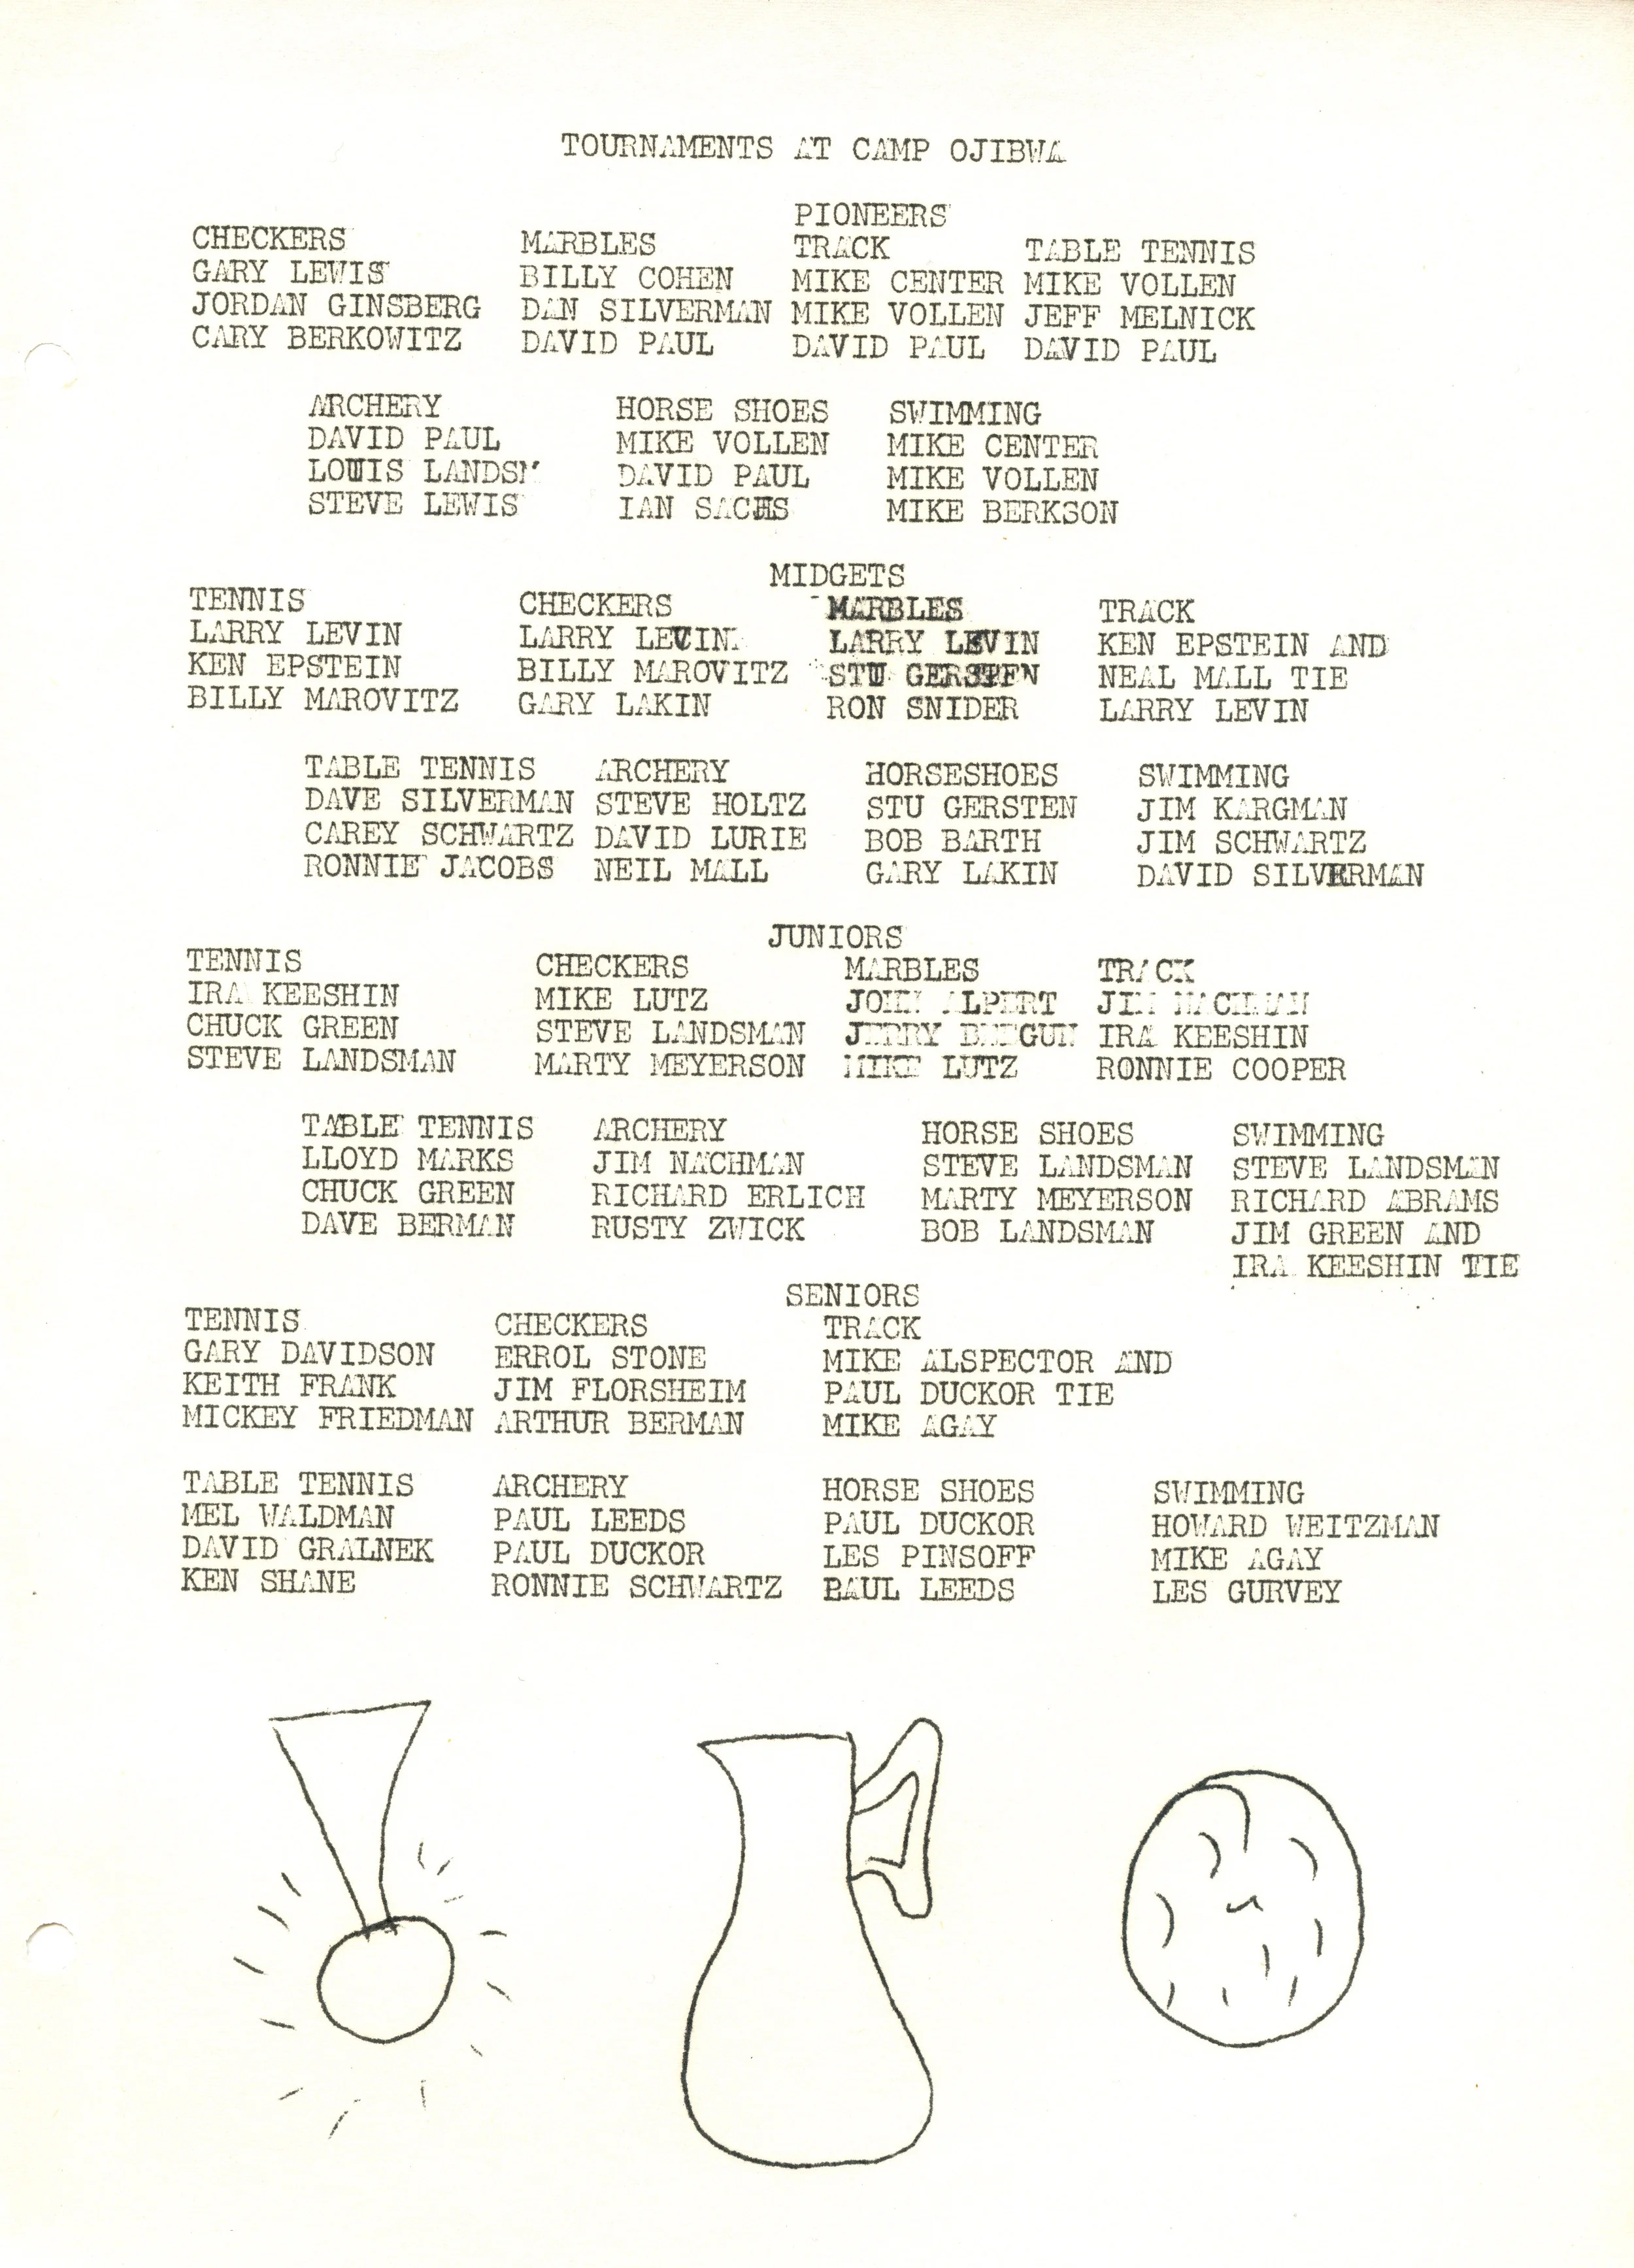 TOURNAMENTS AT CAMP OJIBWA
PIONEERS
CHECKERS MARBLES TRACK TABLE TENNIS
GARY LEWIS BILLY COHEN MIKE CENTER MIKE VOLLEN
JORDAN GINSBERG DAN SILVERMAN MIKE VOLLEN JEFF MELNICK
CARY BERKOWITZ DAVID PAUL DAVID PAUL DAVID PAUL
ARCHERY HORSE SHOES SWIMMING
DAVID PAUL MIKE VOLLEN MIKE CENTER
LOUIS DAVID PAUL MIKE VOLLEN
STEVE LEWIS IAN SACHS MIKE BERKSON
MIDGETS
TENNIS CHECKERS MARBLES TRACK
LARRY LEVIN LARRY LEVIN LARRY LEVIN KEN EPSTEIN AND
KEN EPSTEIN BILLY MAROVITZ STU GERSTEN NEAL MALL TIE
BILLY MAROVITZ GARY LAKIN RON SNIDER LARRY LEVIN
TABLE TENNIS ARCHERY HORSESHOES SWIMMING
DAVE SILVERMAN STEVE HOLTZ STU GERSTEN JIM KARGMAN
CAREY SCHWARTZ DAVID LURIE BOB BARTH JIM SCHWARTZ
RONNIE JACOBS NEIL MALL GARY LAKIN DAVID SILVERMAN
JUNIORS
TENNIS CHECKERS MARBLES TRACK
IRA KEESHIN MIKE LUTZ JOHN ALPERT JIM NACHMAN
CHUCK GREEN STEVE LANDSMAN JERRY IRA KEESHIN
STEVE LANDSMAN MARTY MEYERSON MIKE LUTZ RONNIE COOPER
TABLE TENNIS ARCHERY HORSE SHOES SWIMMING
LLOYD MARKS JIM NACHMAN STEVE LANDSMAN STEVE LANDSMAN
CHUCK GREEN RICHARD ERLICH MARTY MEYERSON RICHARD ABRAMS
DAVE BERMAN RUSTY ZWICK BOB LANDSMAN JIM GREEN AND
IRA KEESHIN TIE
SENIORS
TENNIS CHECKERS TRACK
GARY DAVIDSON ERROL STONE MIKE ALSPECTOR AND
KEITH FRANK JIM FLORSHEIM PAUL DUCKOR TIE
MICKEY FRIEDMAN ARTHUR BERMAN MIKE AGAY
TABLE TENNIS ARCHERY HORSE SHOES SWIMMING
MEL WALDMAN PAUL LEEDS PAUL DUCKOR HOWARD WEITZMAN
DAVID GRALNEK PAUL DUCKOR LES PINSOFF MIKE AGAY
KEN SHANE RONNIE SCHWARTZ PAUL LEEDS LES GURVEY